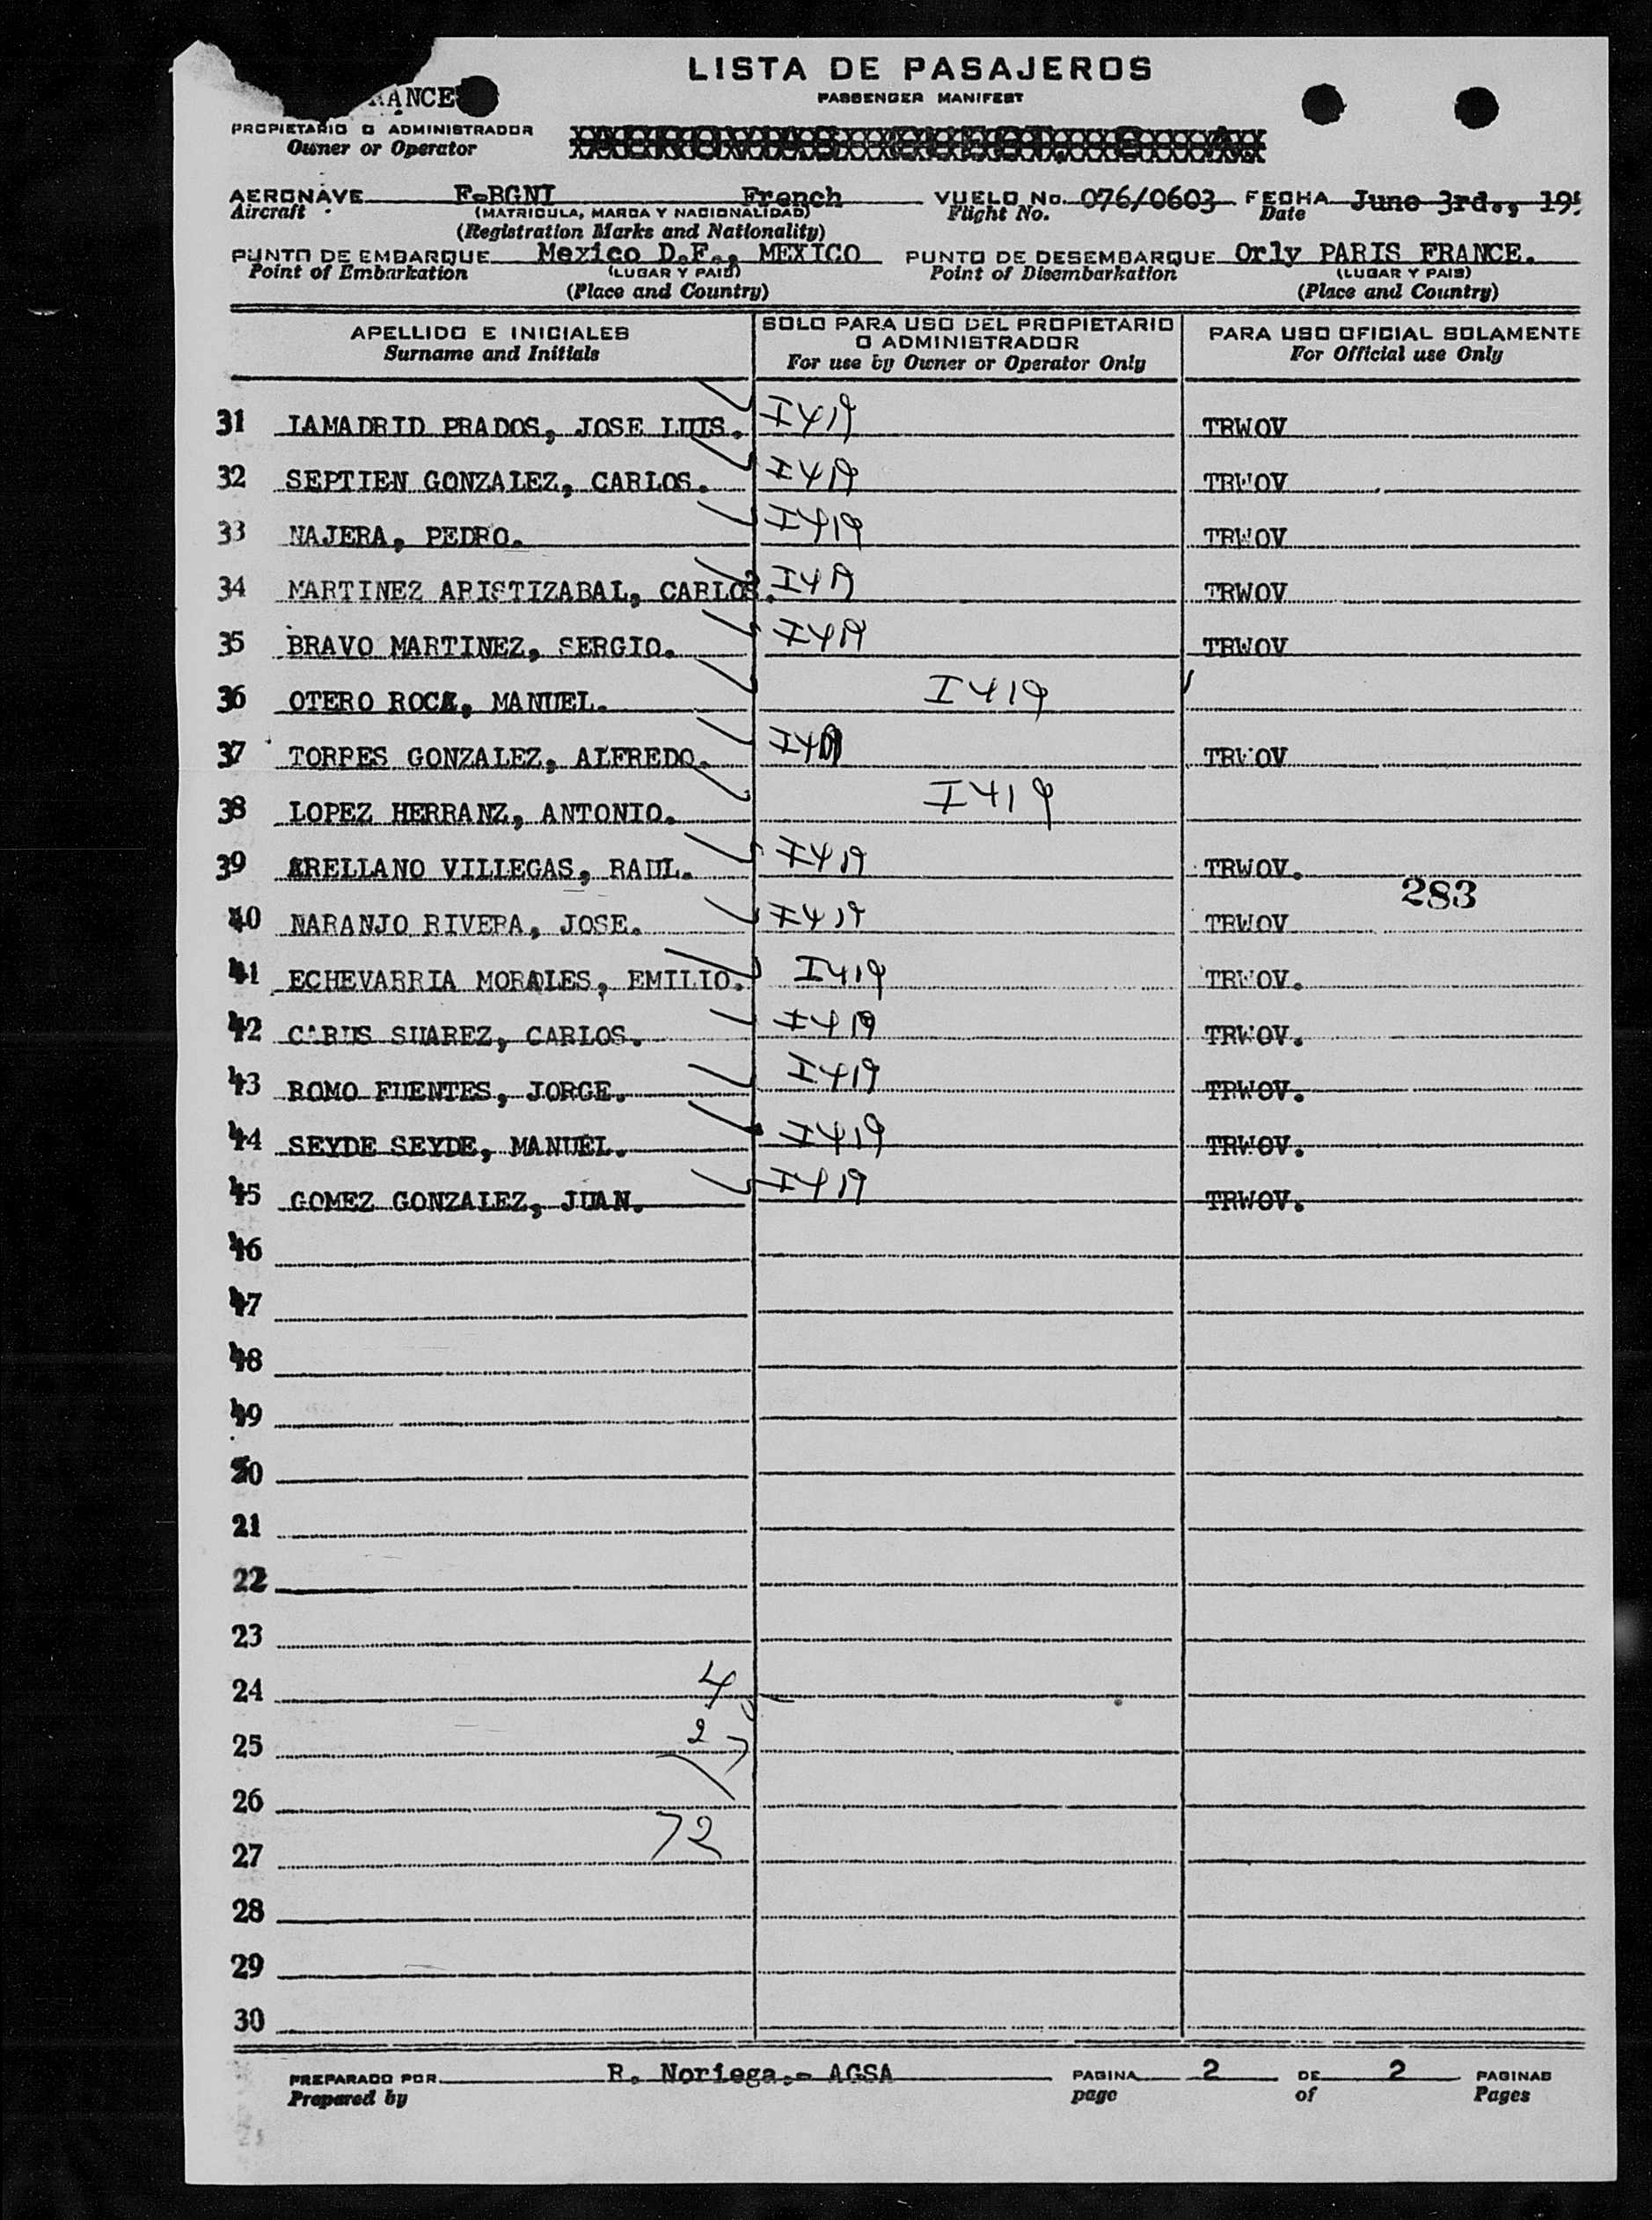 LISTA DE PASAJEROS
PASSENGER MANIFEST
PROPIETARIO O ADMINISTRADOR
Owner or Operator
AERONAVE F-BGNI French VUELO No. 076/0603 FECHA June 3rd.,
Aircraft (MATRICULA, MARCA Y NACIONALIDAD) Flight No. Date
(Registration Marks and Nationality)
PUNTO DE EMBARQUE Mexico D.F., MEXICO PUNTO DE DESEMBARQUE Orly PARIS FRANCE.
Point of Embarkation (LUGAR Y PAIS) Point of Disembarkation (LUGAR Y PAIS)
(Place and Country) (Place and Country)
APELLIDO E INICIALES SOLO PARA USO DEL PROPIETARIO O ADMINISTRADOR PARA USO OFICIAL SOLAMENTE
Surname and Initials For use by Owner or Operator Only For Official use Only
31 LAMADRID PRADOS, JOSE LUIS. I419 TRWOV
32 SEPTIEN GONZALEZ, CARLOS. I419 TRWOV
33 NAJERA, PEDRO. I419 TRWOV
34 MARTINEZ ARISTIZABAL, CARLOS. I419 TRWOV
35 BRAVO MARTINEZ, SERGIO. I419 TRWOV
36 OTERO ROCA, MANUEL. I419
37 TORRES GONZALEZ, ALFREDO. I419 TRWOV
38 LOPEZ HERRANZ, ANTONIO. I419
39 ARELLANO VILLEGAS, RAUL. I419 TRWOV.
283
40 NARANJO RIVERA, JOSE. I419 TRWOV
41 ECHEVARRIA MORALES, EMILIO. I419 TRWOV.
42 CARUS SUAREZ, CARLOS. I419 TRWOV.
43 ROMO FUENTES, JORGE. I419 TRWOV.
44 SEYDE SEYDE, MANUEL. I419 TRWOV.
45 GOMEZ GONZALEZ, JUAN. I419 TRWOV.
46
47
48
49
50
21
22
23
24 4
25 2
26
27 72
28
29
30
PREPARADO POR R. Noriega.- AGSA PAGINA 2 DE 2 PAGINAS
Prepared by page of Pages